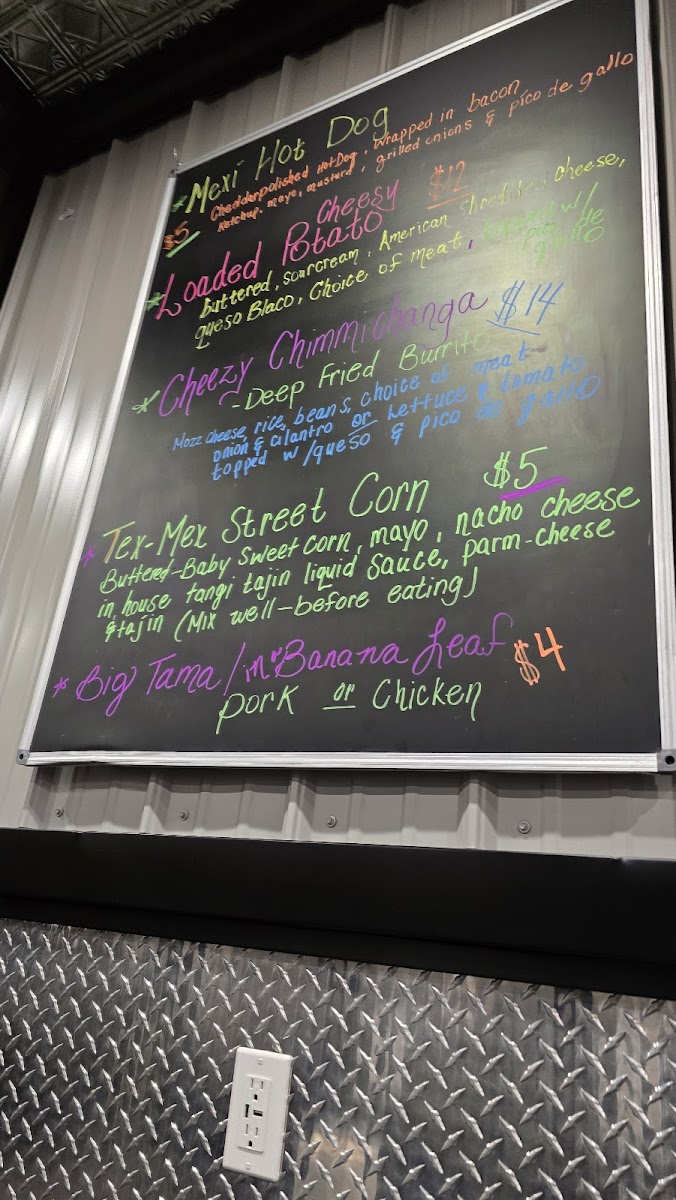 * Mexi Hot Dog
Chedderpolished HotDog, wrapped in bacon
$5 Ketchup, mayo, mustard, grilled onions & pico de gallo
Cheesy $12
* Loaded Potato
buttered, sourcream, American shredded cheese,
queso Blaco, Choice of meat, topped w/
pico de
gallo
* Cheezy Chimmichanga $14
- Deep Fried Burrito
Mozz cheese, rice, beans, choice of meat
onion & cilantro or lettuce & tomato
topped w/queso & pico de gallo
* Tex-Mex Street Corn $5
Buttered-Baby Sweet Corn, mayo, nacho cheese
in house tangi tajin liquid sauce, parm-cheese
& tajin (Mix well-before eating)
* Big Tama/in Banana Leaf $4
pork or Chicken